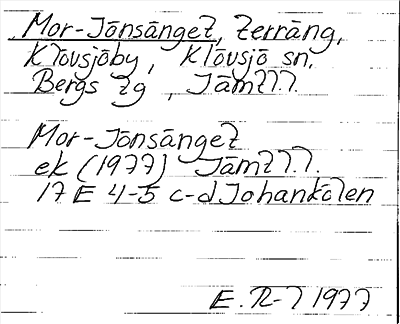 Mor-Jönsänget, terräng,
Klövsjöby, Klövsjö sn.
Bergs tg, Jämtl.
Mor-Jönsänget
ek (1977) Jämtl.
17 E 4-5 c-d Johankölen
E. R-l 1977